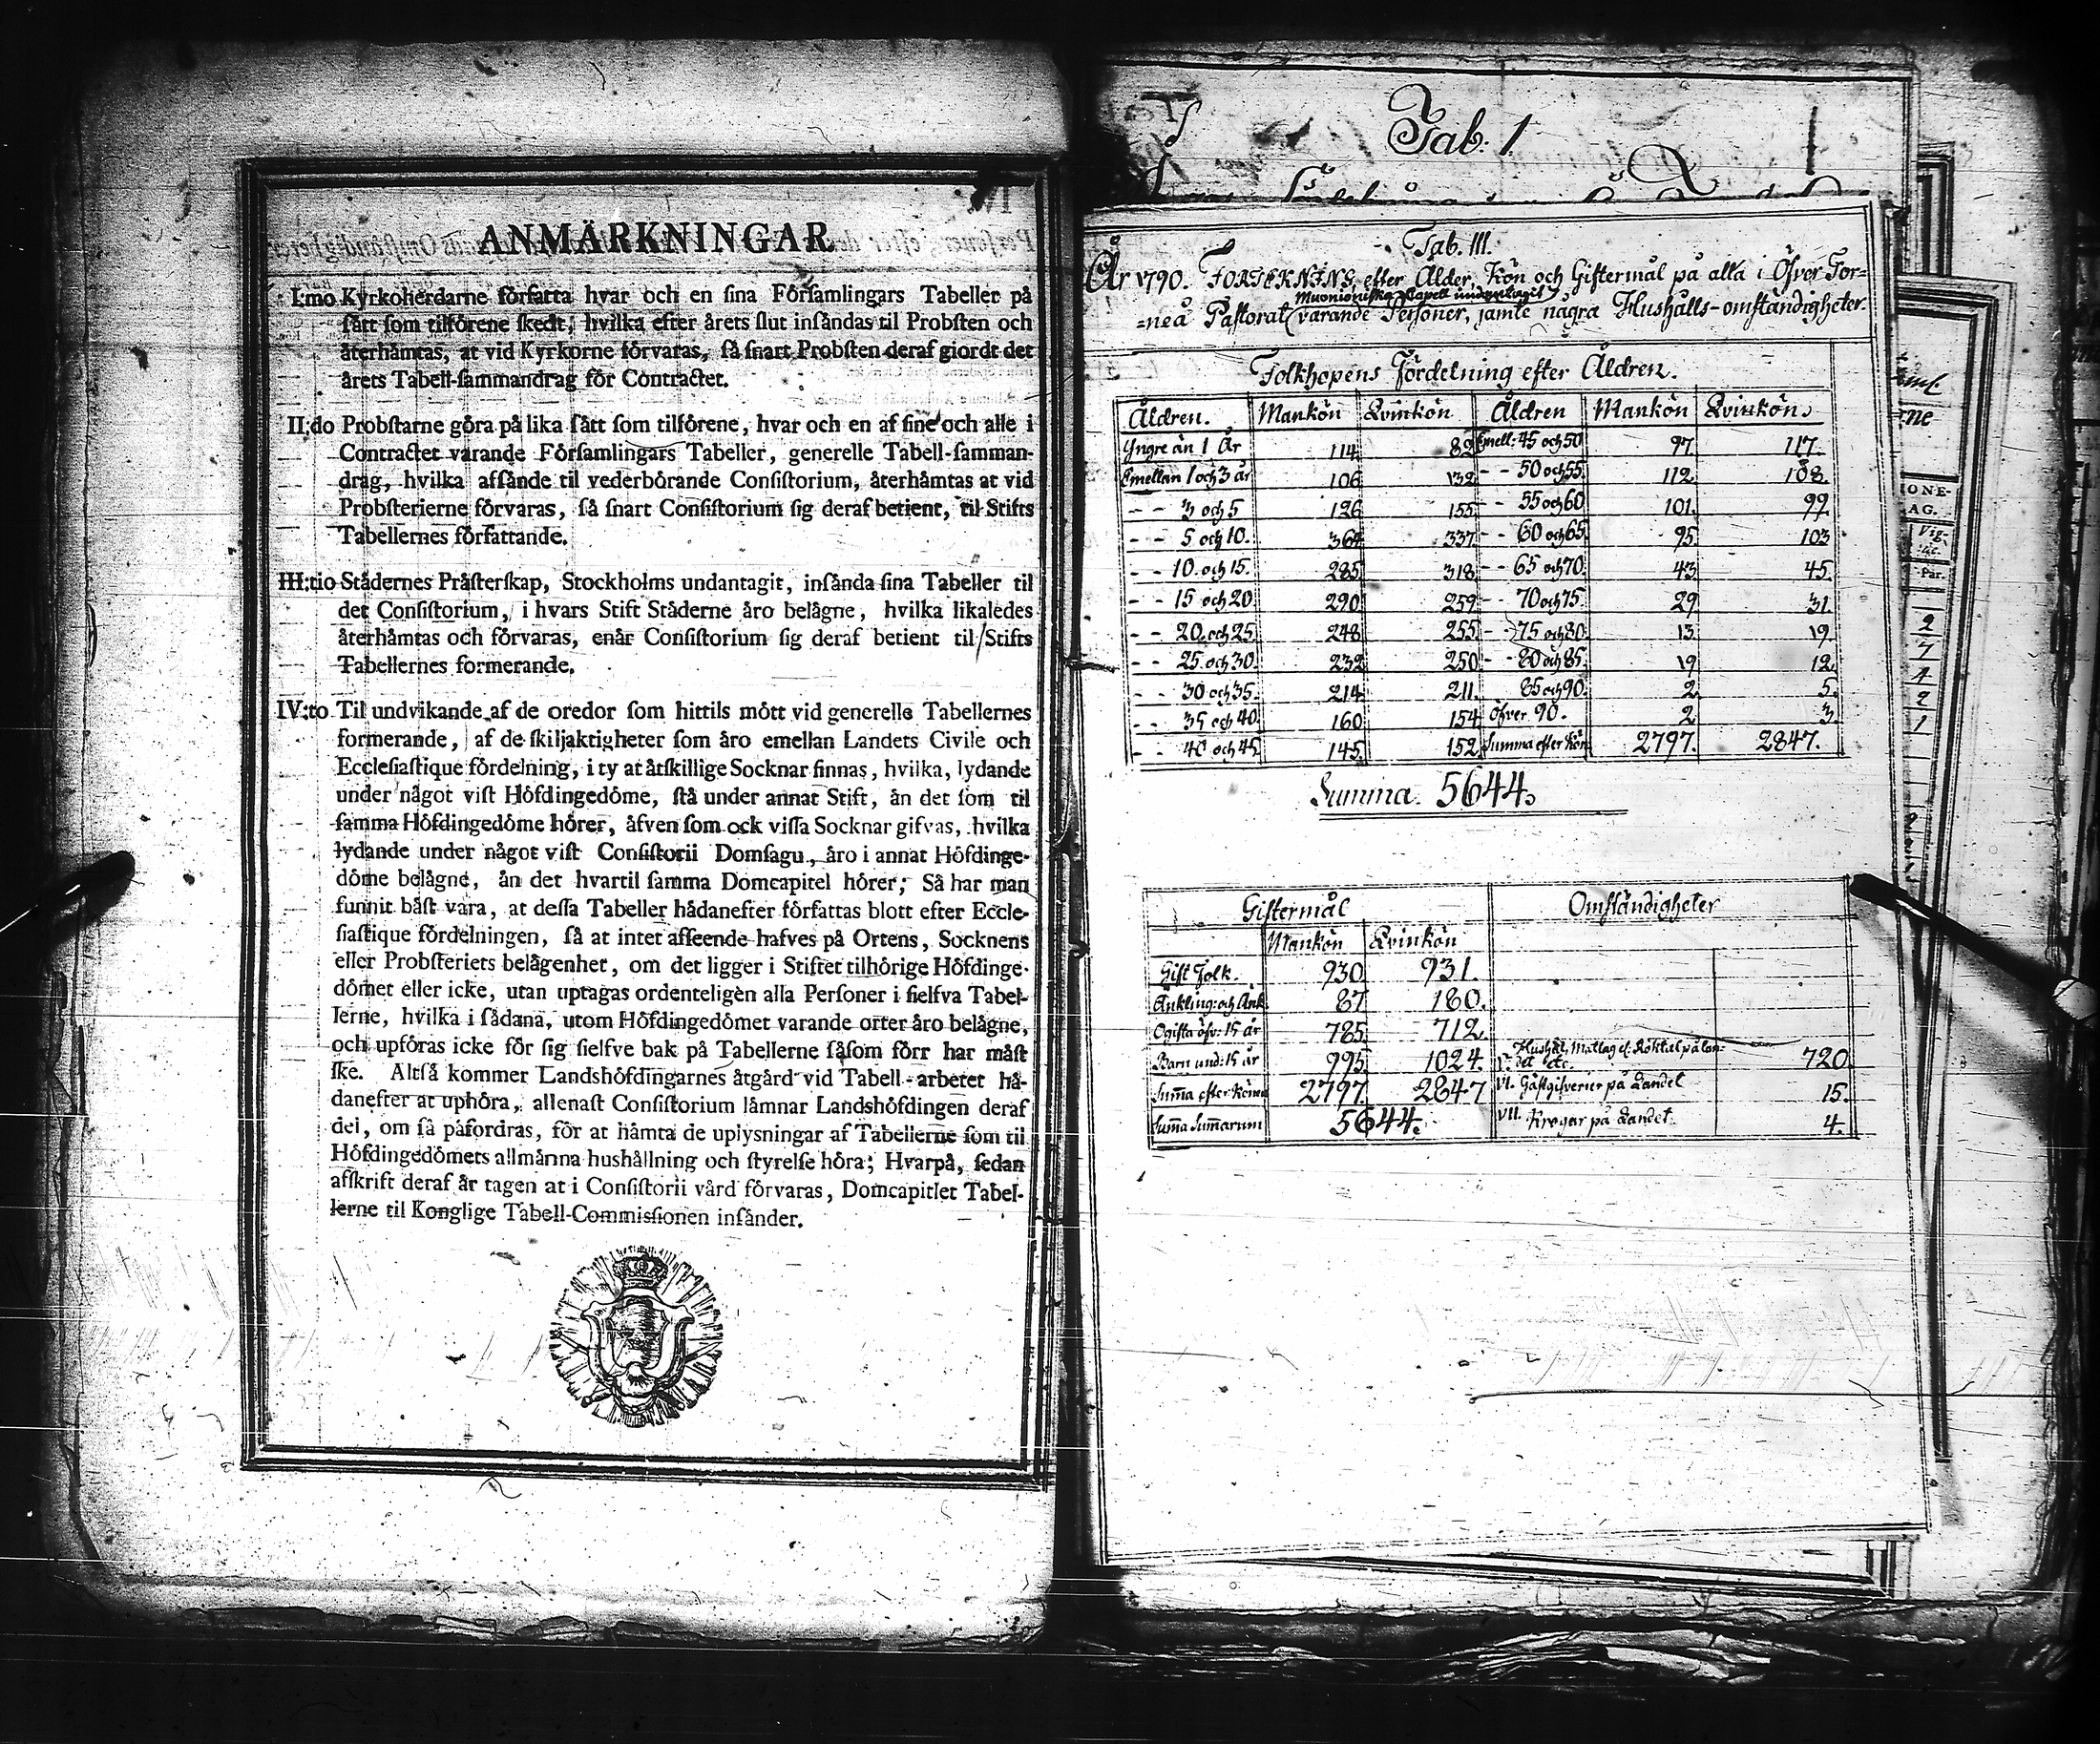 ANMÄRKNINGAR
I:mo Kyrkoherdarne författa hvar och en sina Församlingars Tabeller på
sätt som tilförene skedt, hvilka efter årets slut insändas til Probsten och
återhämtas, at vid Kyrkorne förvaras, så snart Probsten deraf giordt det
årets Tabell-sammandrag för Contractet.
II:do Probstarne göra på lika sätt som tilförene, hvar och en af sine och alle i
Contractet varande Församlingars Tabeller, generelle Tabell-samman-
drag, hvilka afsände til vederbörande Consistorium, återhämtas at vid
Probsterierne förvaras, så snart Consistorium sig deraf betient, til Stifts
Tabellernes författande.
III:tio Städernes Prästerskap, Stockholms undantagit, insända sina Tabeller til
det Consistorium, i hvars Stift Städerne äro belägne, hvilka likaledes
återhämtas och förvaras, enär Consistorium sig deraf betient til Stifts
Tabellernes formerande.
IV:to Til undvikande af de oredor som hittils mött vid generelle Tabellernes
formerande, af de skiljaktigheter som äro emellan Landets Civile och
Ecclesiastique fördelning, i ty at åtskillige Socknar finnas, hvilka, lydande
under något vist Höfdingedöme, stå under annat Stift, än det som til
samma Höfdingedöme hörer, äfven som ock vissa Socknar gifvas, hvilka
lydande under något vist Consistorii Domsagu, äro i annat Höfdinge-
döme belägne, än det hvartil samma Domcapitel hörer; Så har man
funnit bäst vara, at dessa Tabeller hädanefter författas blott efter Eccle-
siastique fördelningen, så at intet afseende hafves på Ortens, Socknens
eller Probsteriets belägenhet, om det ligger i Stiftet tilhörige Höfdinge-
dömet eller icke, utan uptagas ordenteligèn alla Personer i sielfva Tabel-
lerne, hvilka i sådana, utom Höfdingedömet varande orter äro belägne,
och upföras icke för sig sielfve bak på Tabellerne såsom förr har måst
ske. Altså kommer Landshöfdingarnes åtgärd vid Tabell-arbetet hä-
danefter at uphöra, allenast Consistorium lämnar Landshöfdingen deraf
del, om så påfordras, för at hämta de uplysningar af Tabellerne som til
Höfdingedömets allmänna hushållning och styrelse höra; Hvarpå, sedan
afskrift deraf är tagen at i Consistorii vård förvaras, Domcapitlet Tabel-
lerne til Konglige Tabell-Commissionen insänder.
Tab. 1
Tab. III.
År 1790. FÖRTEKNING, efter Ålder, Kön och Giftermål på alla i Öfver Tor=
Muonioniska Capell undantagit
=neå Pastorat varande Personer, jämte några Hushålls-omständigheter.
Folkhopens Fördelning efter Åldren.
Åldren. Mankön Qvinkön Åldren Mankön Qvinkön.
Yngre än 1 År 114 82 Emell: 45 och 50 97 117.
Emellan 1 och 3 år 106 132 - - 50 och 55 112 108.
- - 3 och 5 126 155 - - 55 och 60 101 99
- - 5 och 10. 364 337 - - 60 och 65 95 103
- - 10 och 15. 285 318 - - 65 och 70 43 45.
- - 15 och 20 290 259 - - 70 och 75 29 31
- - 20 och 25 248 255 - - 75 och 80 13 19.
- - 25 och 30 232 250 - - 80 och 85 19 12.
- - 30 och 35. 214 211. 85 och 90. 2 5.
- - 35 och 40 160 154 Öfver 90. 2 3.
- - 40 och 45 145. 152 Summa efter Kön 2797. 2847.
Summa. 5644.
Giftermål Omständigheter
Mankön Qvinkön
Gift Folk. 930 931.
Änkling: och Änk. 87 180.
Ogifta öfv: 15 år 785 712.
Barn und: 15 år 995 1024. V. Hushåll, Matlag el. Röktal på lan-
det etc. 720
Suma efter Könen 2797 2847 VI. Gästgifverier på Landet 15.
Suma Sumarum 5644. VII. Krogar på Landet. 4.